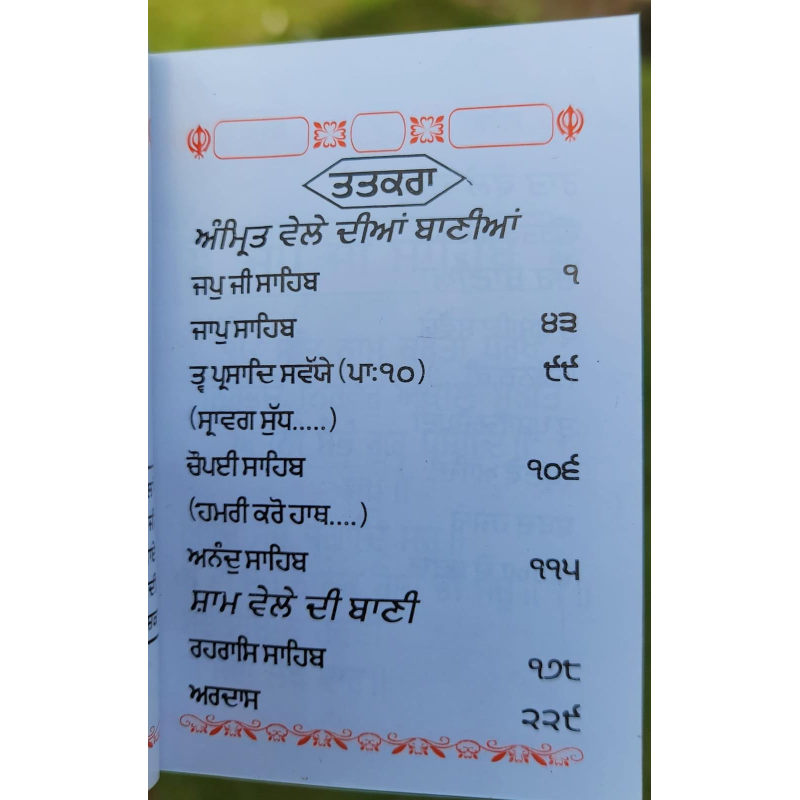 ਤਤਕਰਾ
ਅੰਮ੍ਰਿਤ ਵੇਲੇ ਦੀਆਂ ਬਾਣੀਆਂ
ਜਪੁ ਜੀ ਸਾਹਿਬ ੧
ਜਾਪੁ ਸਾਹਿਬ ੪੩
ਤ੍ਵ ਪ੍ਰਸਾਦਿ ਸਵੱਯੇ (ਪਾ:੧੦) ੯੯
(ਸ੍ਰਾਵਗ ਸੁੱਧ.....)
ਚੌਪਈ ਸਾਹਿਬ ੧੦੬
(ਹਮਰੀ ਕਰੋ ਹਾਥ....)
ਅਨੰਦੁ ਸਾਹਿਬ ੧੧੫
ਸ਼ਾਮ ਵੇਲੇ ਦੀ ਬਾਣੀ
ਰਹਰਾਸਿ ਸਾਹਿਬ ੧੭੮
ਅਰਦਾਸ ੨੨੯